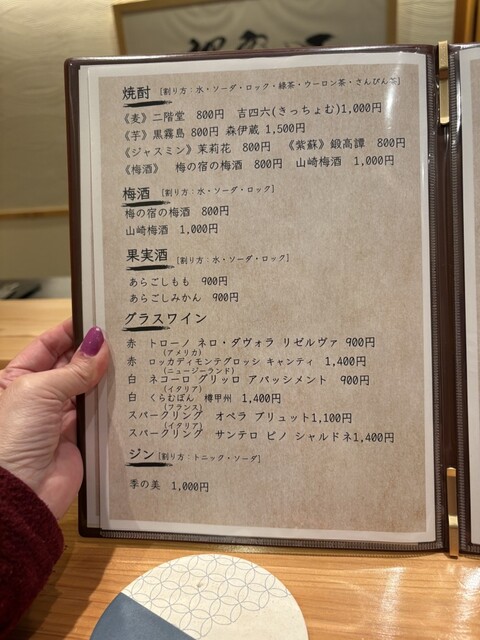 焼酎 [割り方：水・ソーダ・ロック・緑茶・ウーロン茶・さんぴん茶]
《麦》二階堂 800円 吉四六(きっちょむ)1,000円
《芋》黒霧島 800円 森伊蔵 1,500円
《ジャスミン》茉莉花 800円 《紫蘇》鍛高譚 800円
《梅酒》 梅の宿の梅酒 800円 山崎梅酒 1,000円
梅酒 [割り方：水・ソーダ・ロック]
梅の宿の梅酒 800円
山崎梅酒 1,000円
果実酒 [割り方：水・ソーダ・ロック]
あらごしもも 900円
あらごしみかん 900円
グラスワイン
赤 トローノ ネロ・ダヴォラ リゼルヴァ 900円
(アメリカ)
赤 ロッカディモンテグロッシ キャンティ 1,400円
(ニュージーランド)
白 ネコーロ グリッロ アパッシメント 900円
(イタリア)
白 くらむぼん 樽甲州 1,400円
(フランス)
スパークリング オペラ ブリュット1,100円
(イタリア)
スパークリング サンテロ ピノ シャルドネ1,400円
ジン [割り方：トニック・ソーダ]
季の美 1,000円